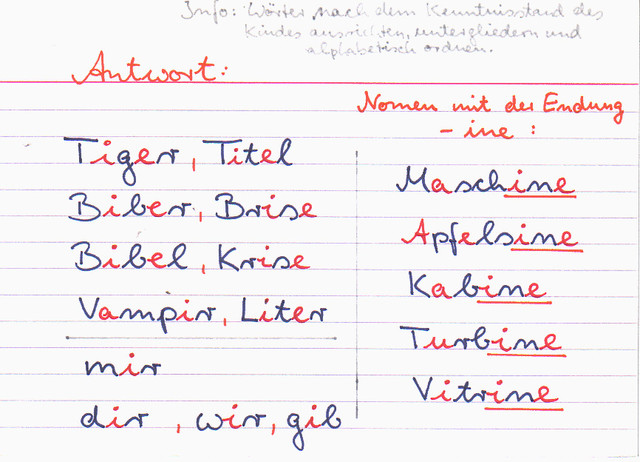 Info: Wörter nach dem Kenntnisstand des
Kindes ausrichten, untergliedern und
alphabetisch ordnen.
Antwort:
Tiger, Titel
Biber, Brise
Bibel, Krise
Vampir, Liter
mir
dir, wir, gib
Nomen mit der Endung
- ine :
Maschine
Apfelsine
Kabine
Turbine
Vitrine